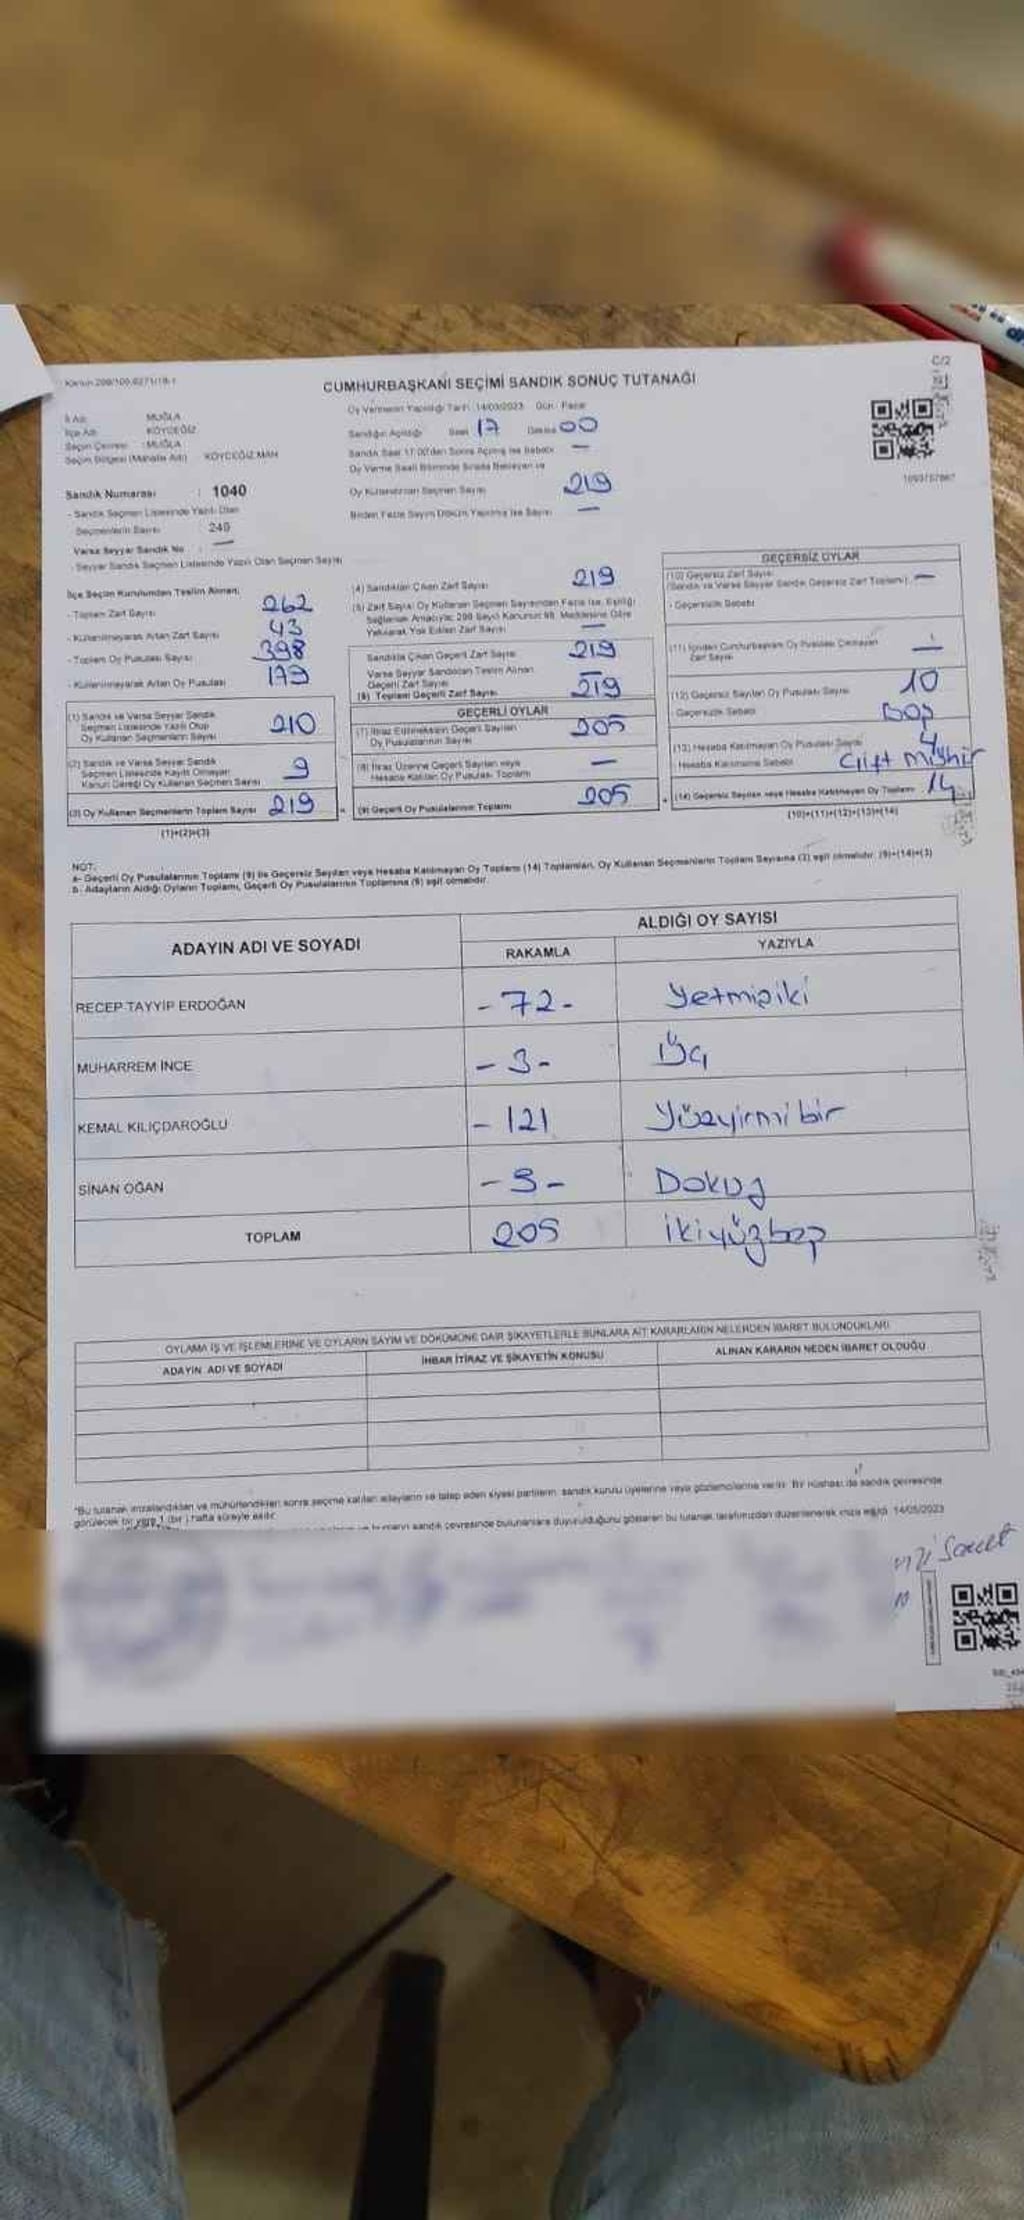 Kanun 298/105,6271/19-1
C/2
CUMHURBAŞKANI SEÇİMİ SANDIK SONUÇ TUTANAĞI
İl Adı : MUĞLA
İlçe Adı : KÖYCEĞİZ
Seçim Çevresi : MUĞLA
Seçim Bölgesi (Mahalle Adı) : KÖYCEĞİZ MAH
Sandık Numarası : 1040
- Sandık Seçmen Listesinde Yazılı Olan
Seçmenlerin Sayısı : 249
Varsa Seyyar Sandık No : —
- Seyyar Sandık Seçmen Listesinde Yazılı Olan Seçmen Sayısı
Oy Vermenin Yapıldığı Tarih : 14/05/2023 Gün : Pazar
Sandığın Açıldığı Saat 17 Dakika 00
Sandık Saat 17:00'den Sonra Açılmış İse Sebebi —
Oy Verme Saati Bitiminde Sırada Bekleyen ve
Oy Kullandırılan Seçmen Sayısı 219
Birden Fazla Sayım Döküm Yapılmış İse Sayısı —
İlçe Seçim Kurulundan Teslim Alınan;
- Toplam Zarf Sayısı 262
- Kullanılmayarak Artan Zarf Sayısı 43
- Toplam Oy Pusulası Sayısı 398
- Kullanılmayarak Artan Oy Pusulası 179
(1) Sandık ve Varsa Seyyar Sandık
Seçmen Listesinde Yazılı Olup
Oy Kullanan Seçmenlerin Sayısı 210
(2) Sandık ve Varsa Seyyar Sandık
Seçmen Listesinde Kayıtlı Olmayan
Kanun Gereği Oy Kullanan Seçmen Sayısı 9
(3) Oy Kullanan Seçmenlerin Toplam Sayısı 219
(1)+(2)=(3)
(4) Sandıktan Çıkan Zarf Sayısı 219
(5) Zarf Sayısı Oy Kullanan Seçmen Sayısından Fazla İse, Eşitliği
Sağlamak Amacıyla; 298 Sayılı Kanunun 98. Maddesine Göre
Yakılarak Yok Edilen Zarf Sayısı —
Sandıkta Çıkan Geçerli Zarf Sayısı 219
Varsa Seyyar Sandıktan Teslim Alınan
Geçerli Zarf Sayısı —
(6) Toplam Geçerli Zarf Sayısı 219
GEÇERLİ OYLAR
(7) İtiraz Edilmeksizin Geçerli Sayılan
Oy Pusulalarının Sayısı 205
(8) İtiraz Üzerine Geçerli Sayılan veya
Hesaba Katılan Oy Pusulası Toplamı —
(9) Geçerli Oy Pusulalarının Toplamı 205
GEÇERSİZ OYLAR
(10) Geçersiz Zarf Sayısı
(Sandık ve Varsa Seyyar Sandık Geçersiz Zarf Toplamı) —
- Geçersizlik Sebebi
(11) İçinden Cumhurbaşkanı Oy Pusulası Çıkmayan
Zarf Sayısı —
(12) Geçersiz Sayılan Oy Pusulası Sayısı 10
- Geçersizlik Sebebi Boş
(13) Hesaba Katılmayan Oy Pusulası Sayısı 4
Hesaba Katılmama Sebebi Çift mühür
(14) Geçersiz Sayılan veya Hesaba Katılmayan Oy Toplamı 14
(10)+(11)+(12)+(13)=(14)
NOT:
a- Geçerli Oy Pusulalarının Toplamı (9) ile Geçersiz Sayılan veya Hesaba Katılmayan Oy Toplamı (14) Toplamları, Oy Kullanan Seçmenlerin Toplam Sayısına (3) eşit olmalıdır. (9)+(14)=(3)
b- Adayların Aldığı Oyların Toplamı, Geçerli Oy Pusulalarının Toplamına (9) eşit olmalıdır.
ADAYIN ADI VE SOYADI
ALDIĞI OY SAYISI
RAKAMLA YAZIYLA
RECEP TAYYİP ERDOĞAN -72- Yetmişiki
MUHARREM İNCE -3- Üç
KEMAL KILIÇDAROĞLU -121 Yüzyirmi bir
SİNAN OĞAN -9- Dokuz
TOPLAM 205 İkiyüzbeş
OYLAMA İŞ VE İŞLEMLERİNE VE OYLARIN SAYIM VE DÖKÜMÜNE DAİR ŞİKAYETLERLE BUNLARA AİT KARARLARIN NELERDEN İBARET BULUNDUKLARI
ADAYIN ADI VE SOYADI
İHBAR İTİRAZ VE ŞİKAYETİN KONUSU
ALINAN KARARIN NEDEN İBARET OLDUĞU
*Bu tutanak imzalandıktan ve mühürlendikten sonra seçime katılan adayların ve talep eden siyasi partilerin sandık kurulu üyelerine veya gözlemcilerine verilir. Bir nüshası da sandık çevresinde
görülecek bir yere 1 (bir) hafta süreyle asılır.
sandık çevresinde bulunanlara duyurulduğunu gösteren bu tutanak tarafımızdan düzenlenerek imza edildi. 14/05/2023